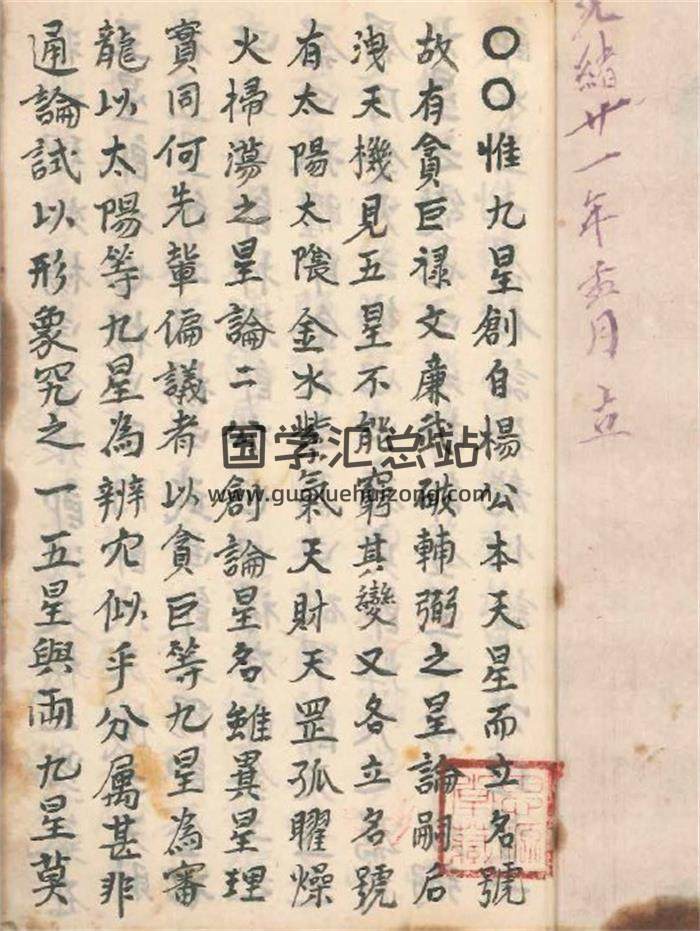 光緒廿一年 月 立
〇〇惟九星創自楊公本天星而立名號
故有貪巨祿文廉武破輔弼之星論嗣后
洩天機見五星不能窮其變又各立名號
有太陽太陰金水紫氣天財天罡孤曜燥
火掃蕩之星論二 創論星名雖異星理
實同何先輩偏議者以貪巨等九星為審
龍以太陽等九星為辨穴似乎分屬甚非
通論試以形象究之一五星與兩九星莫
国学汇总站
www.gunxuehuizong.com